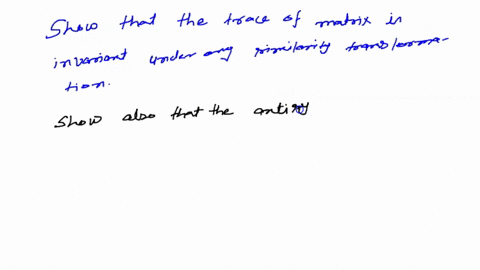 Show that the trace of matrix is
invariant under any similarity transforma-
tion.
Show also that the antisy